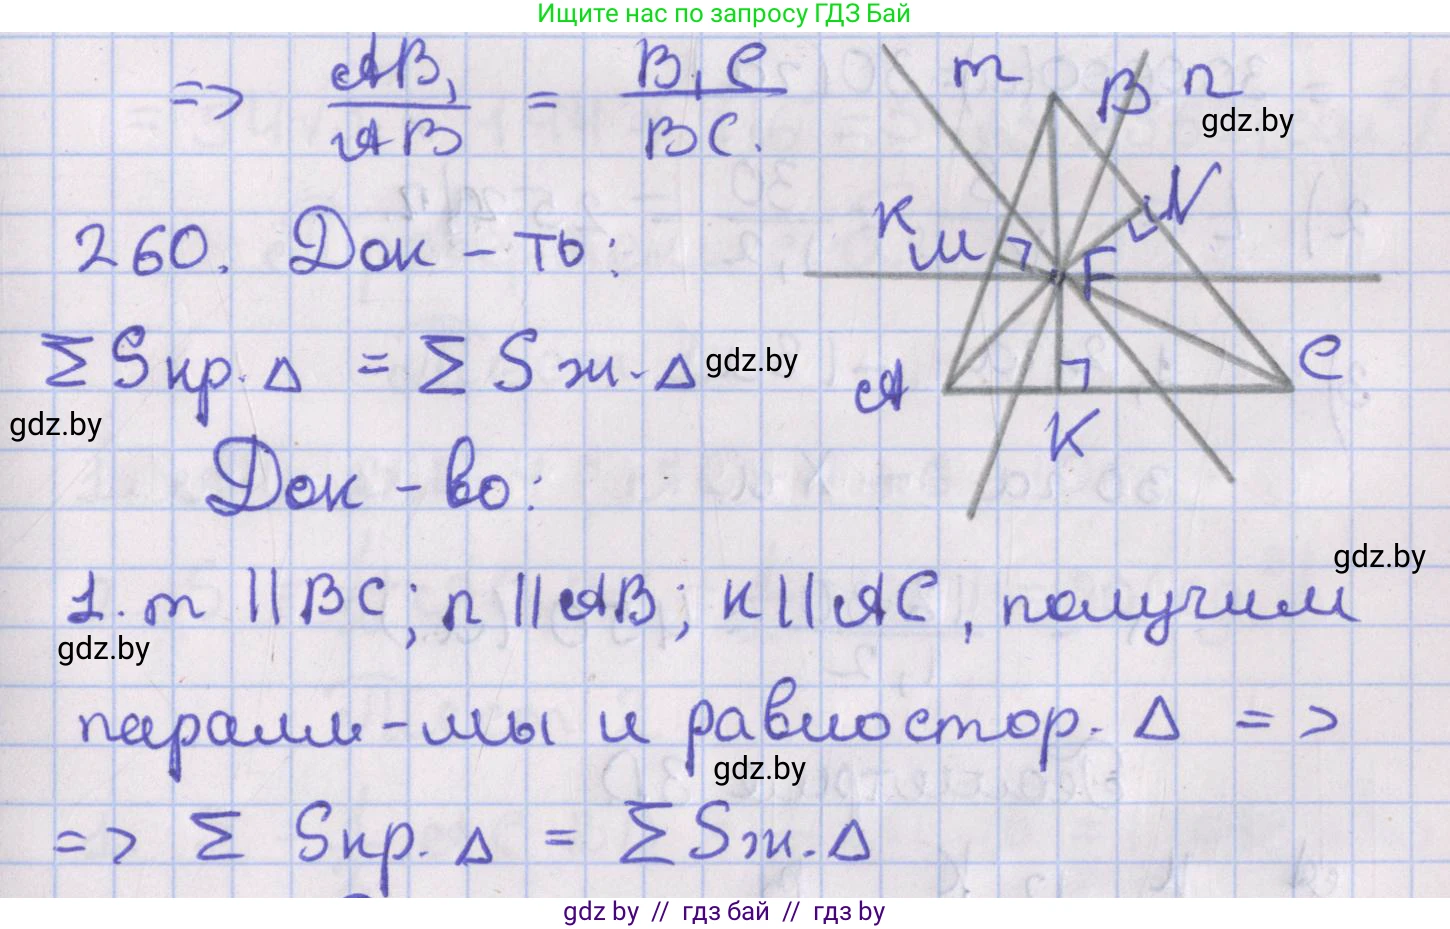 Ищите нас по запросу ГДЗ Бай
=> AB₁/AB = B₁C/BC.
m B n
gdz.by
K M N F
260. Док-ть:
ΣSкр.Δ = ΣSж.Δ
gdz.by
A C
K
gdz.by
Док-во:
gdz.by
1. m || BC; n || AB; к || AC, получим
gdz.by
паралл-мы и равностор. Δ =>
gdz.by
=> Σ Sкр.Δ = ΣSж.Δ
gdz.by // гдз бай // гдз by